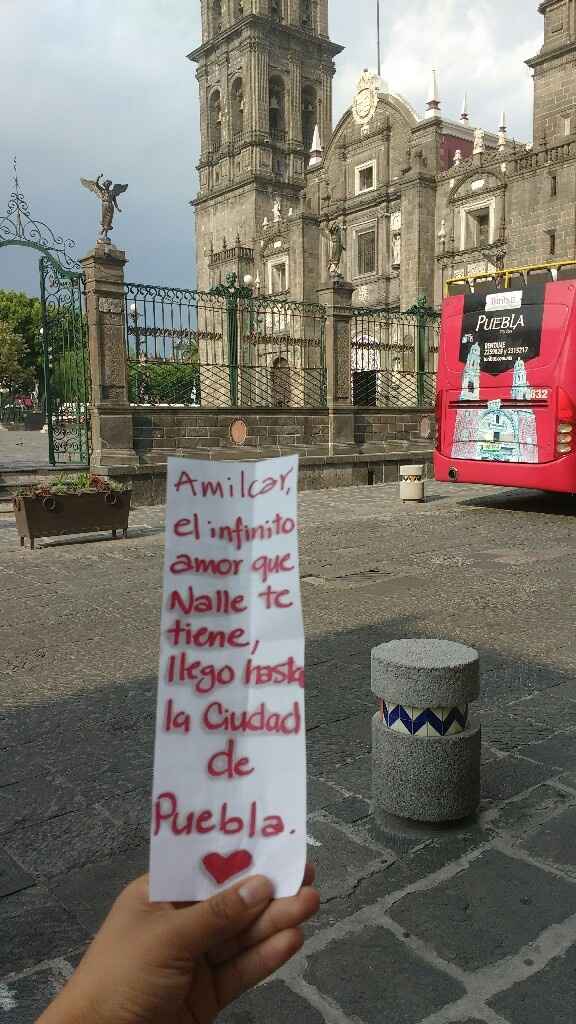 Amilcar,
el infinito
amor que
Nalle te
tiene,
llego hasta
la Ciudad
de
Puebla.
PUEBLA
832